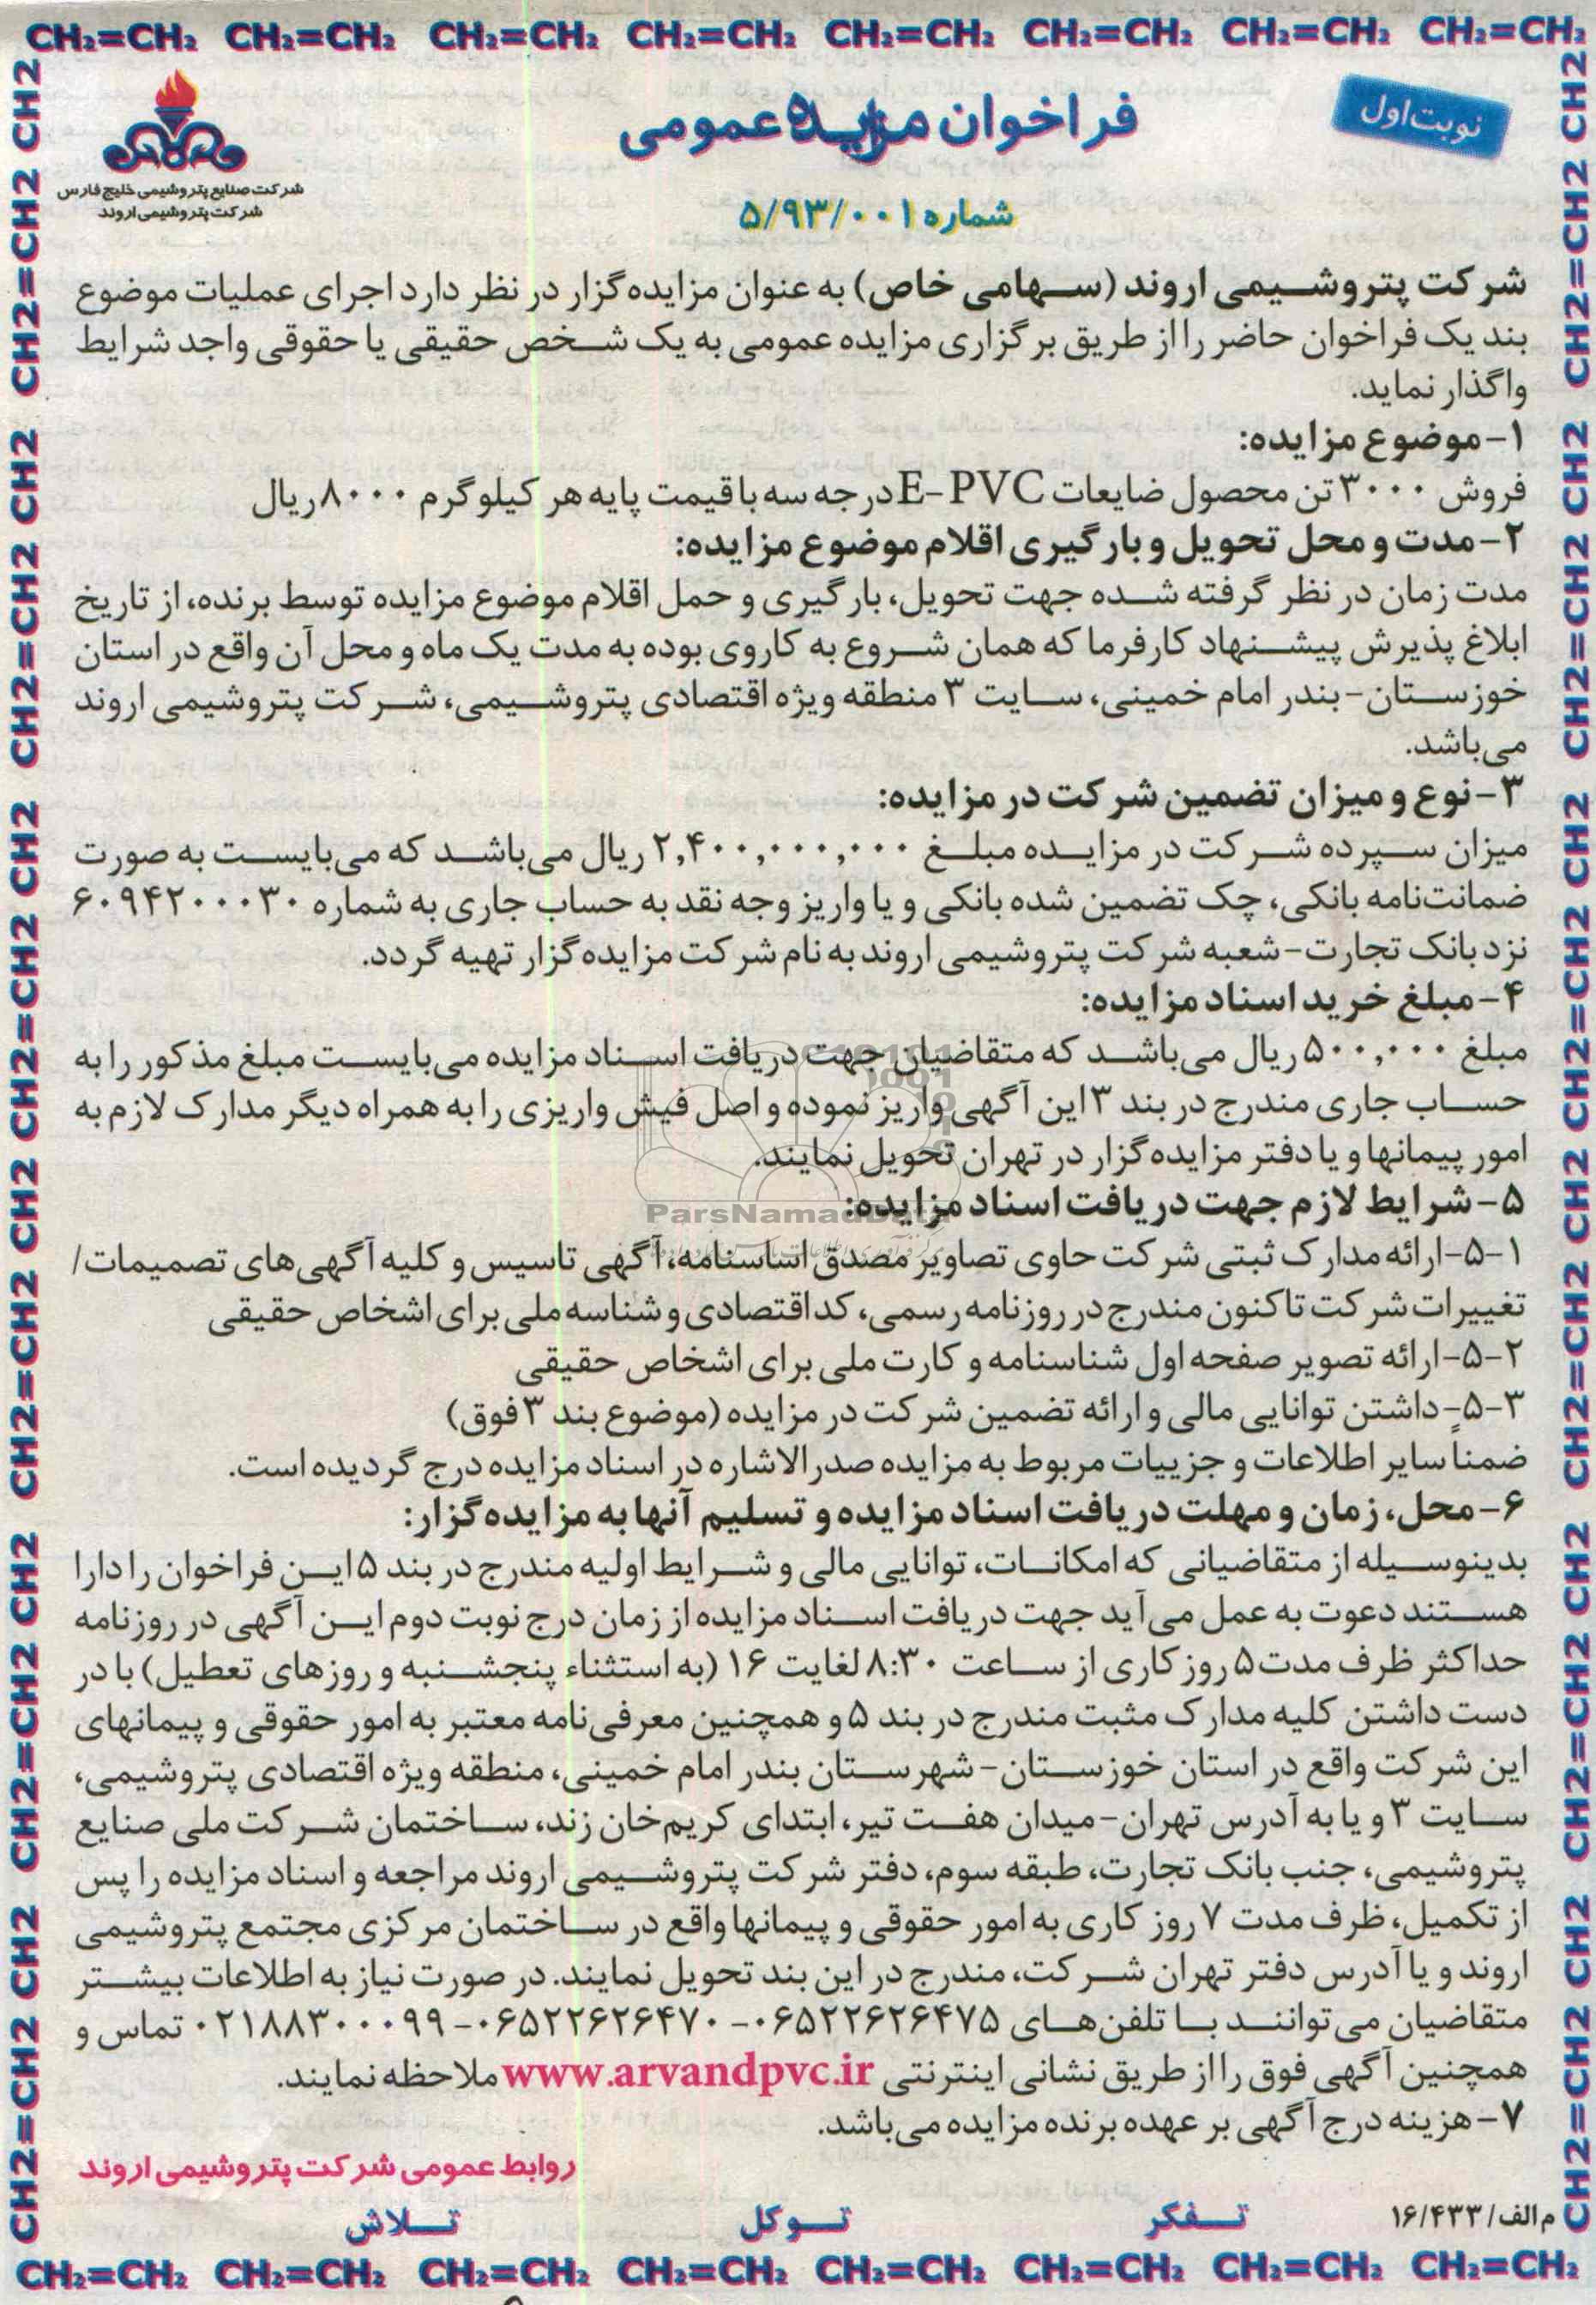 CH₂=CH₂ CH₂=CH₂ CH₂=CH₂ CH₂=CH₂ CH₂=CH₂ CH₂=CH₂ CH₂=CH₂ CH₂=CH₂
نوبت اول
فراخوان مزایده عمومی
شماره ۵/۹۳/۰۰۱
شرکت صنایع پتروشیمی خلیج فارس
شرکت پتروشیمی اروند
شرکت پتروشیمی اروند (سهامی خاص) به عنوان مزایده‌گزار در نظر دارد اجرای عملیات موضوع
بند یک فراخوان حاضر را از طریق برگزاری مزایده عمومی به یک شخص حقیقی یا حقوقی واجد شرایط
واگذار نماید.
۱- موضوع مزایده:
فروش ۳۰۰۰ تن محصول ضایعات E-PVC درجه سه با قیمت پایه هر کیلوگرم ۸۰۰۰ ریال
۲- مدت و محل تحویل و بارگیری اقلام موضوع مزایده:
مدت زمان در نظر گرفته شده جهت تحویل، بارگیری و حمل اقلام موضوع مزایده توسط برنده، از تاریخ
ابلاغ پذیرش پیشنهاد کارفرما که همان شروع به کار وی بوده به مدت یک ماه و محل آن واقع در استان
خوزستان- بندر امام خمینی، سایت ۳ منطقه ویژه اقتصادی پتروشیمی، شرکت پتروشیمی اروند
می‌باشد.
۳- نوع و میزان تضمین شرکت در مزایده:
میزان سپرده شرکت در مزایده مبلغ ۲,۴۰۰,۰۰۰,۰۰۰ ریال می‌باشد که می‌بایست به صورت
ضمانت‌نامه بانکی، چک تضمین شده بانکی و یا واریز وجه نقد به حساب جاری به شماره ۶۰۹۴۲۰۰۰۳۰
نزد بانک تجارت- شعبه شرکت پتروشیمی اروند به نام شرکت مزایده‌گزار تهیه گردد.
۴- مبلغ خرید اسناد مزایده:
مبلغ ۵۰۰,۰۰۰ ریال می‌باشد که متقاضیان جهت دریافت اسناد مزایده می‌بایست مبلغ مذکور را به
حساب جاری مندرج در بند ۳ این آگهی واریز نموده و اصل فیش واریزی را به همراه دیگر مدارک لازم به
امور پیمانها و یا دفتر مزایده‌گزار در تهران تحویل نمایند.
۵- شرایط لازم جهت دریافت اسناد مزایده:
ParsNamadData
۵-۱- ارائه مدارک ثبتی شرکت حاوی تصاویر مصدق اساسنامه، آگهی تاسیس و کلیه آگهی‌های تصمیمات/
تغییرات شرکت تاکنون مندرج در روزنامه رسمی، کد اقتصادی و شناسه ملی برای اشخاص حقیقی
۵-۲- ارائه تصویر صفحه اول شناسنامه و کارت ملی برای اشخاص حقیقی
۵-۳- داشتن توانایی مالی و ارائه تضمین شرکت در مزایده (موضوع بند ۳ فوق)
ضمناً سایر اطلاعات و جزییات مربوط به مزایده صدرالاشاره در اسناد مزایده درج گردیده است.
۶- محل، زمان و مهلت دریافت اسناد مزایده و تسلیم آنها به مزایده‌گزار:
بدینوسیله از متقاضیانی که امکانات، توانایی مالی و شرایط اولیه مندرج در بند ۵ این فراخوان را دارا
هستند دعوت به عمل می‌آید جهت دریافت اسناد مزایده از زمان درج نوبت دوم این آگهی در روزنامه
حداکثر ظرف مدت ۵ روز کاری از ساعت ۸:۳۰ لغایت ۱۶ (به استثناء پنجشنبه و روزهای تعطیل) با در
دست داشتن کلیه مدارک مثبت مندرج در بند ۵ و همچنین معرفی‌نامه معتبر به امور حقوقی و پیمانهای
این شرکت واقع در استان خوزستان- شهرستان بندر امام خمینی، منطقه ویژه اقتصادی پتروشیمی،
سایت ۳ و یا به آدرس تهران- میدان هفت تیر، ابتدای کریم‌خان زند، ساختمان شرکت ملی صنایع
پتروشیمی، جنب بانک تجارت، طبقه سوم، دفتر شرکت پتروشیمی اروند مراجعه و اسناد مزایده را پس
از تکمیل، ظرف مدت ۷ روز کاری به امور حقوقی و پیمانها واقع در ساختمان مرکزی مجتمع پتروشیمی
اروند و یا آدرس دفتر تهران شرکت، مندرج در این بند تحویل نمایند. در صورت نیاز به اطلاعات بیشتر
متقاضیان می‌توانند با تلفن‌های ۰۶۵۲۲۶۲۶۴۷۵-۰۶۵۲۲۶۲۶۴۷۰-۰۲۱۸۸۳۰۰۰۹۹ تماس و
همچنین آگهی فوق را از طریق نشانی اینترنتی www.arvandpvc.ir ملاحظه نمایند.
۷- هزینه درج آگهی بر عهده برنده مزایده می‌باشد.
روابط عمومی شرکت پتروشیمی اروند
م الف/۱۶/۴۳۳
تفکر توکل تلاش
CH₂=CH₂ CH₂=CH₂ CH₂=CH₂ CH₂=CH₂ CH₂=CH₂ CH₂=CH₂ CH₂=CH₂ CH₂=CH₂
CH2=CH2 CH2=CH2 CH2=CH2 CH2=CH2 CH2=CH2 CH2=CH2 CH2
CH2=CH2 CH2=CH2 CH2=CH2 CH2=CH2 CH2=CH2 CH2=CH2 CH2